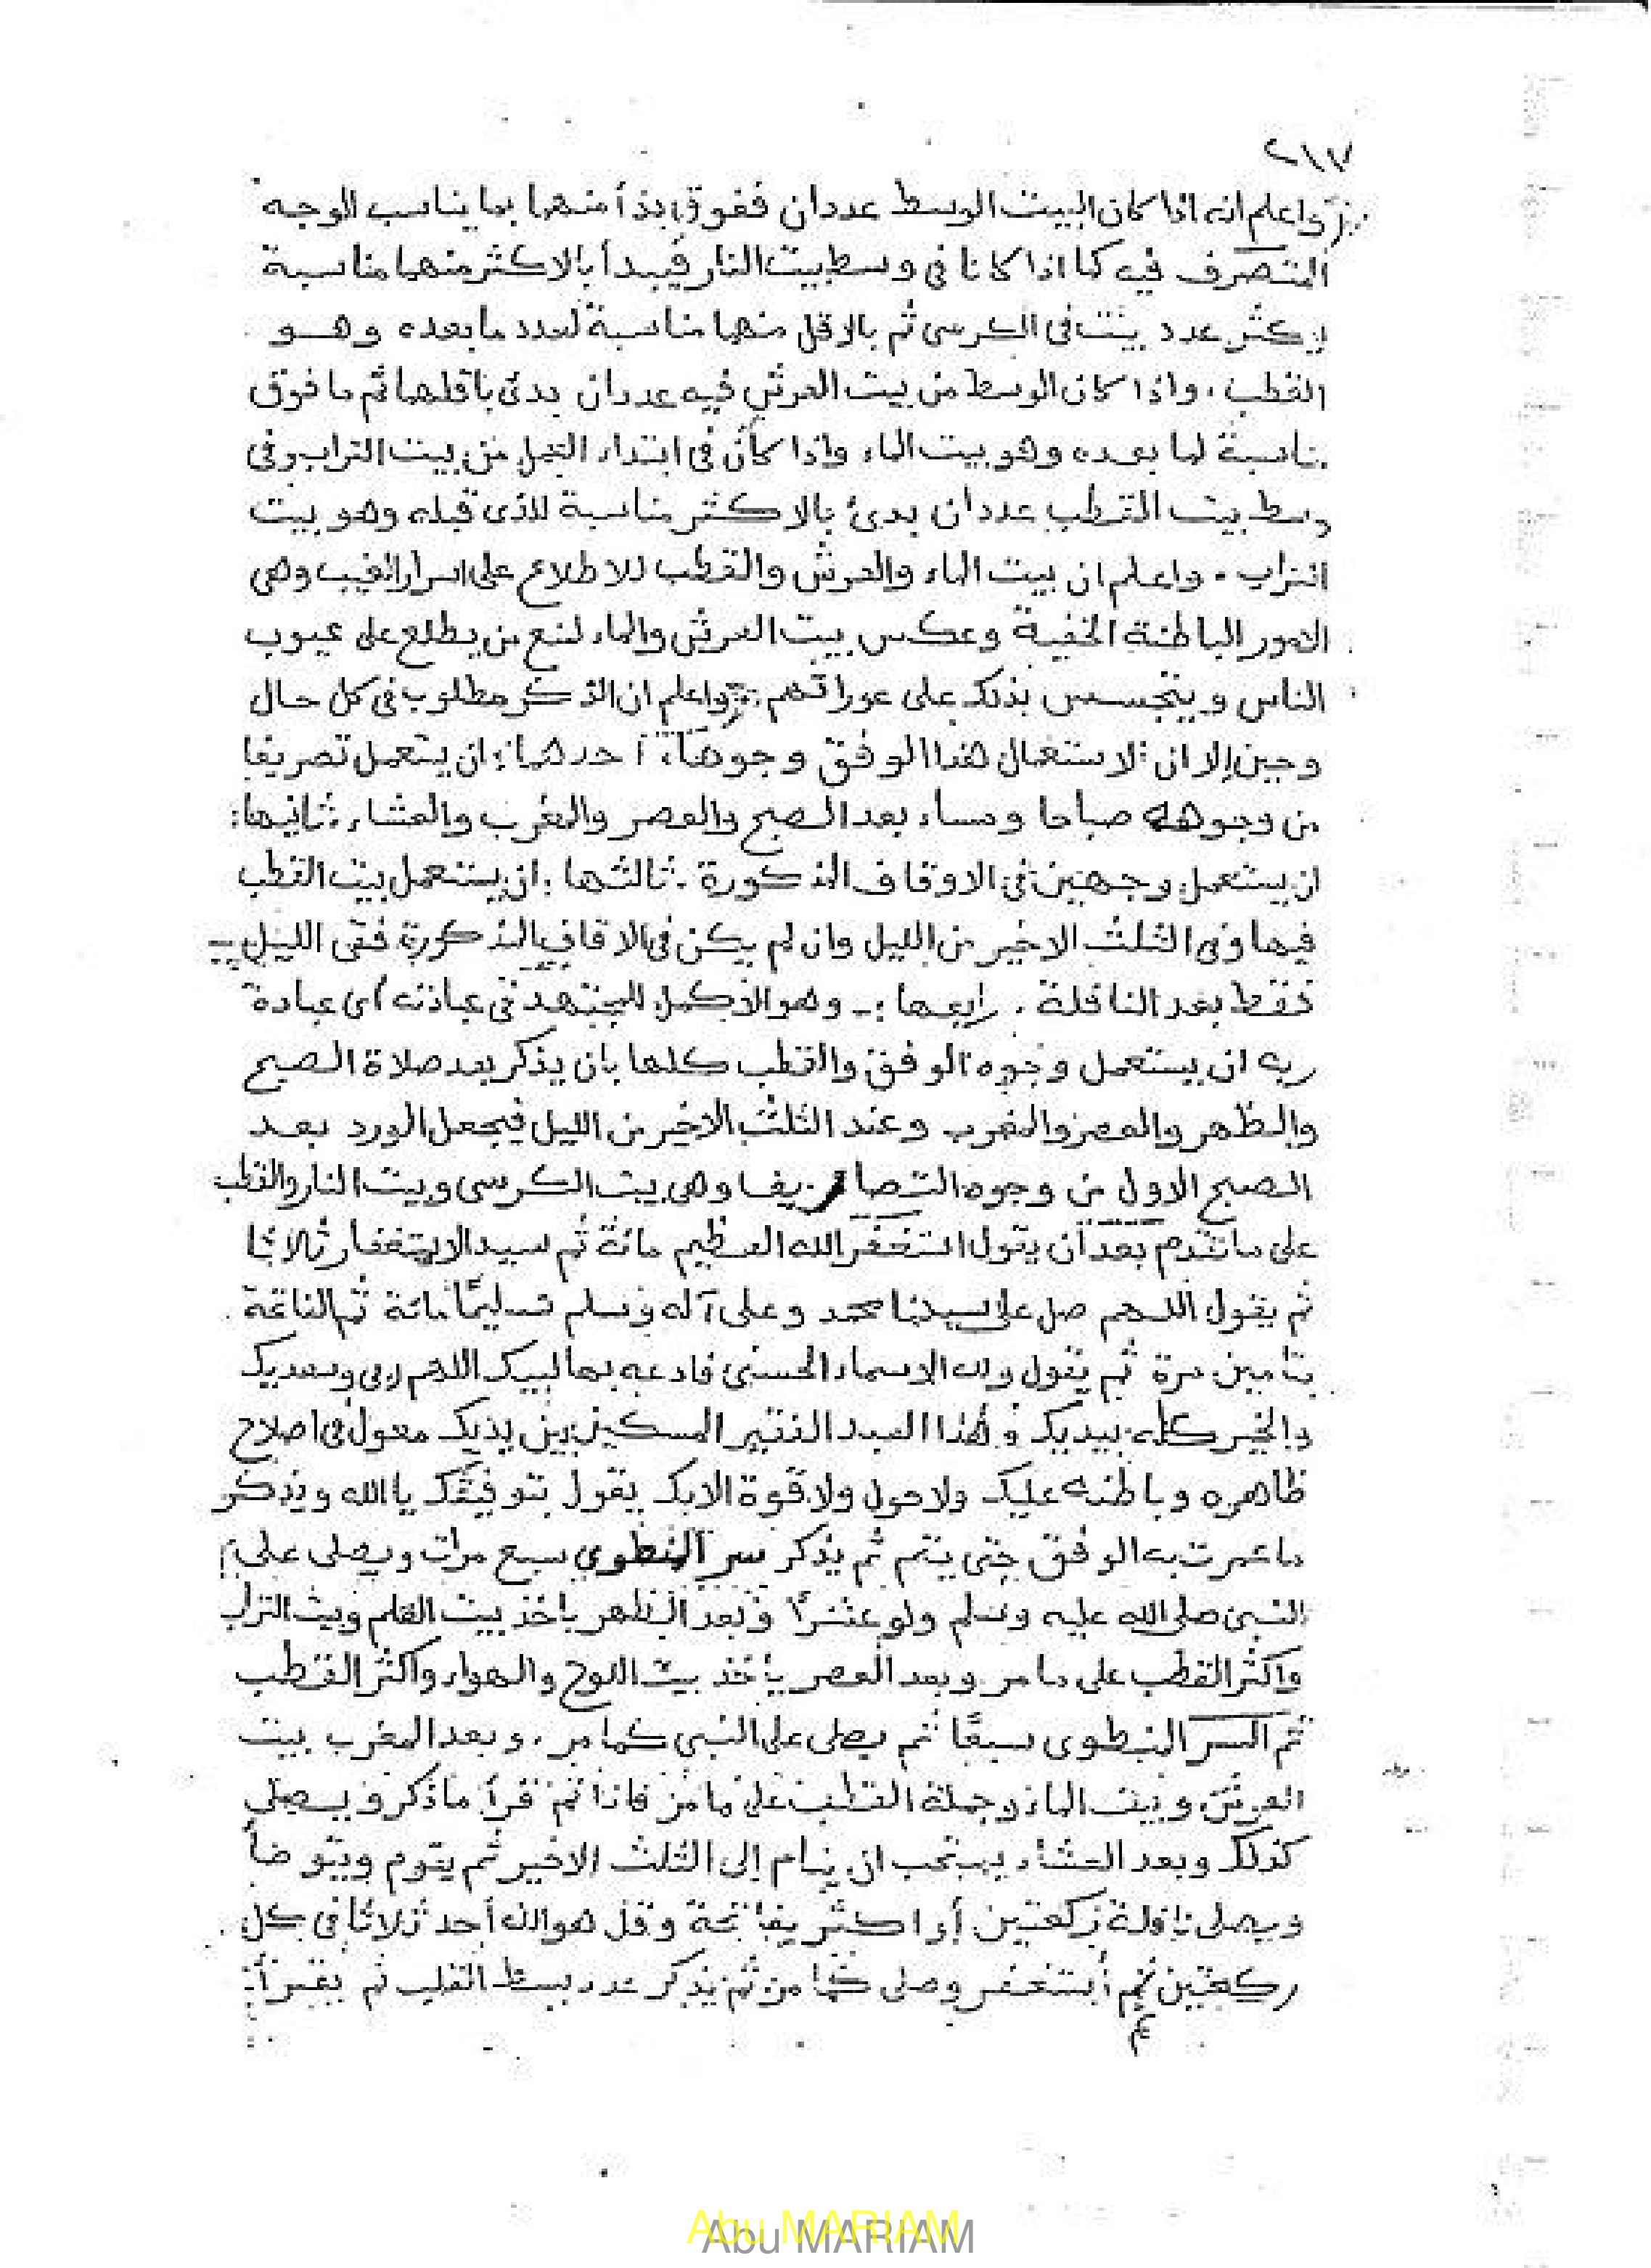 ٢١٧
واعلم انه اذا كان البيت الوسط عددان ففوق بدأ منهما بما يناسب الوجه
المتصرف فيه كما اذا كانا فى وسط بيت النار فيبدأ بالاكثر منهما مناسبة
عدد بيت فى الكرسى ثم بالاقل منهما مناسبة لعدد ما بعده وهو
القطب . واذا كان الوسط من بيت العرش فيه عددان بدئ باقلهما ثم ما فوق
مناسبة لما بعده وهو بيت الماء واذا كان فى ابتداء العمل من بيت التراب وفى
وسط بيت القطب عددان بدئ بالاكثر مناسبة للذى قبله وهو بيت
التراب . واعلم ان بيت الماء والعرش والقطب للاطلاع على اسرار الغيب وهى
الامور الباطنة الخفية وعكس بيت العرش والماء لمنع من يطلع على عيوب
الناس ويتجسس بذلك على عوراتهم واعلم ان الذكر مطلوب فى كل حال
وحين إلا ان لاستعمال هذا الوفق وجوها، أحدهما: ان يستعمل تصريفا
من وجوهه صباحا ومساء بعد الصبح والعصر والمغرب والعشاء . ثانيها:
ان يستعمل وجهين فى الاوقاف المذكورة . ثالثها : ان يستعمل بيت القطب
فيها وفى الثلث الاخير من الليل وان لم يكن فى الاقاف المذكورة ففى الليل
فقط بعد النافلة . رابعها :- وهو الاكمل للمجتهد فى عبادته أى عبادة
ربه ان يستعمل وجوه الوفق والقطب كلها بان يذكر بعد صلاة الصبح
والظهر والعصر والمغرب وعند الثلث الاخير من الليل فيجعل الورد بعد
الصبح الاول من وجوه التصاريف وهى بيت الكرسى وبيت النار والقطب
على ما تقدم بعد أن يقول استغفر الله العظيم مائة ثم سيد الاستغفار ثلاثا
ثم يقول اللهم صل على سيدنا محمد وعلى آله وسلم تسليمًا مائة ثم الفاتحة
مرة ثم يقول ولله الاسماء الحسنى فادعوه بها لبيك اللهم ربى وسعديك
والخير كله بيديك وهذا العبد الفقير المسكين بين يديك معول فى اصلاح
ظاهره وباطنه عليك ولا حول ولا قوة الا بك يقول بتوفيقك يا الله ويذكر
ما عمرت به الوفق حتى يتم ثم يذكر سر سبع مرات ويصلى على
النبى صلى الله عليه وسلم ولو عشرًا وبعد الظهر ياخذ بيت القلم وبيت التراب
واكثر القطب على ما مر وبعد العصر يأخذ بيت اللوح والهواء واكثر القطب
ثم السر سبعًا ثم يصلى على النبى كما مر . وبعد المغرب بيت
العرش وبيت الماء وجملة القطب على ما مر فاذا تم قرأ ما ذكر ويصلى
كذلك وبعد العشاء يستحب ان ينام إلى الثلث الاخير ثم يقوم ويتوضأ
ويصلى نافلة ركعتين أو اكثر بفاتحة وقل هو الله أحد ثلاثا فى كل
ركعتين ثم أستغفر وصلى كما مر ثم يذكر عدد بسط القلب ثم يقرأ
Abu MARIAM